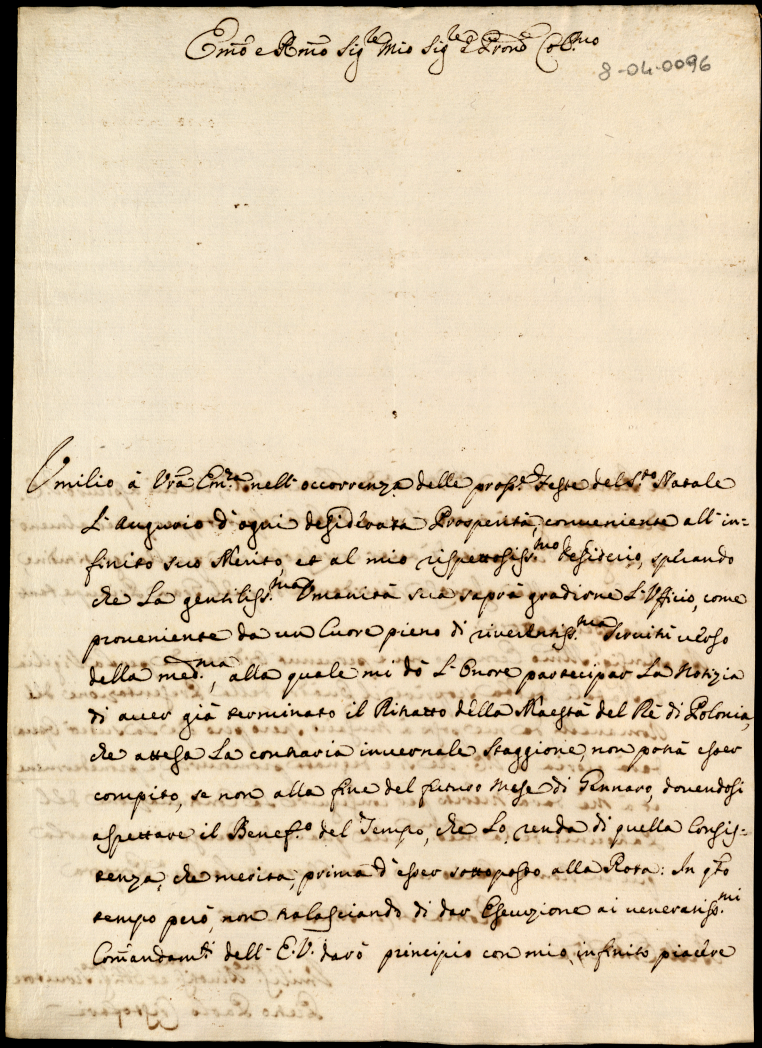 Emõ e Rmõ Sig.re Mio Sig.re e Prone Col.mo
8-04-0096
Umilio à Vrã Em.za nell'occorrenza delle pross.e Feste del S.to Natale
L'Augurio d'ogni desiderata Prosperità, conveniente all'in=
finito suo Merito, et al mio rispettosiss.mo desiderio, sperando
che La gentiliss.ma Umanità sua saprà gradirne L'Ufficio, come
proveniente da un Cuore pieno di riverentiss.ma Servitù verso
della med.ma, alla quale mi dò L'Onore partecipar La Notizia
di aver già terminato il Ritratto della Maestà del Rè di Polonia,
che attesa La contraria invernale Staggione, non potrà esser
compito, se non alla fine del futuro Mese di Gennaro, dovendosi
aspettare il Benef.o del Tempo, che Lo renda di quella Consis=
tenza, che merita, prima d'esser sottoposto alla Rota: In q̃to
tempo però, non tralasciando di dar Esecuzione ai veneratiss.mi
Comãndam.ti dell'E.V. darò principio con mio infinito piacere